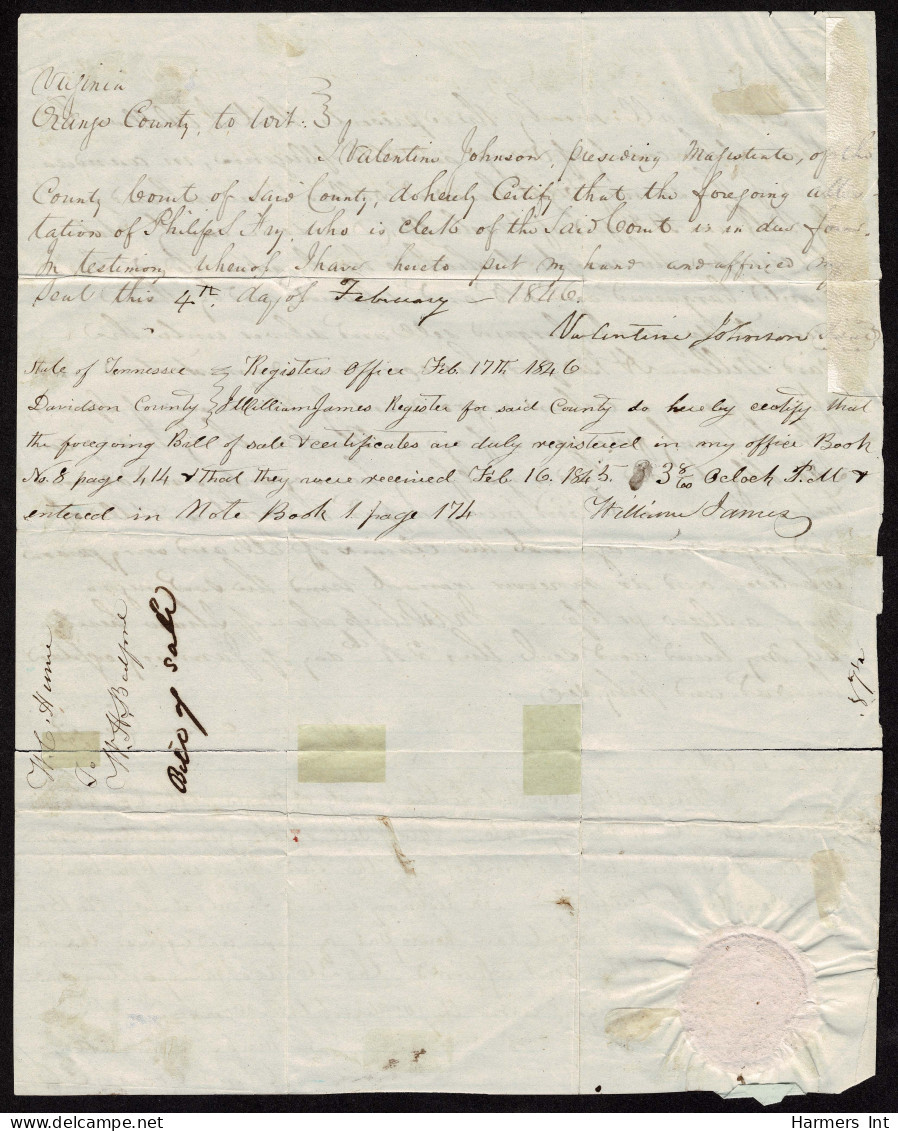 Virginia
Orange County, to wit:
I Valentine Johnson, presiding Magistrate, of the
County Court of Said County, do hereby Certify that the foregoing attes-
tation of Philip S Fry, who is clerk of the Said Court is in due form.
In testimony whereof I have hereto put my hand and affixed my
Seal this 4th. day of February - 1846.
Valentine Johnson
State of Tennessee Registers Office Feb. 17th 1846
Davidson County I William James Register for said County do hereby certify that
the foregoing Bill of sale & certificates are duly registered in my office Book
No. 8 page 414 & that they were received Feb 16. 1845. Oclock P.M &
entered in Note Book 1. page 174 William James
To
W. H.
Bill of sale
Harmers Int